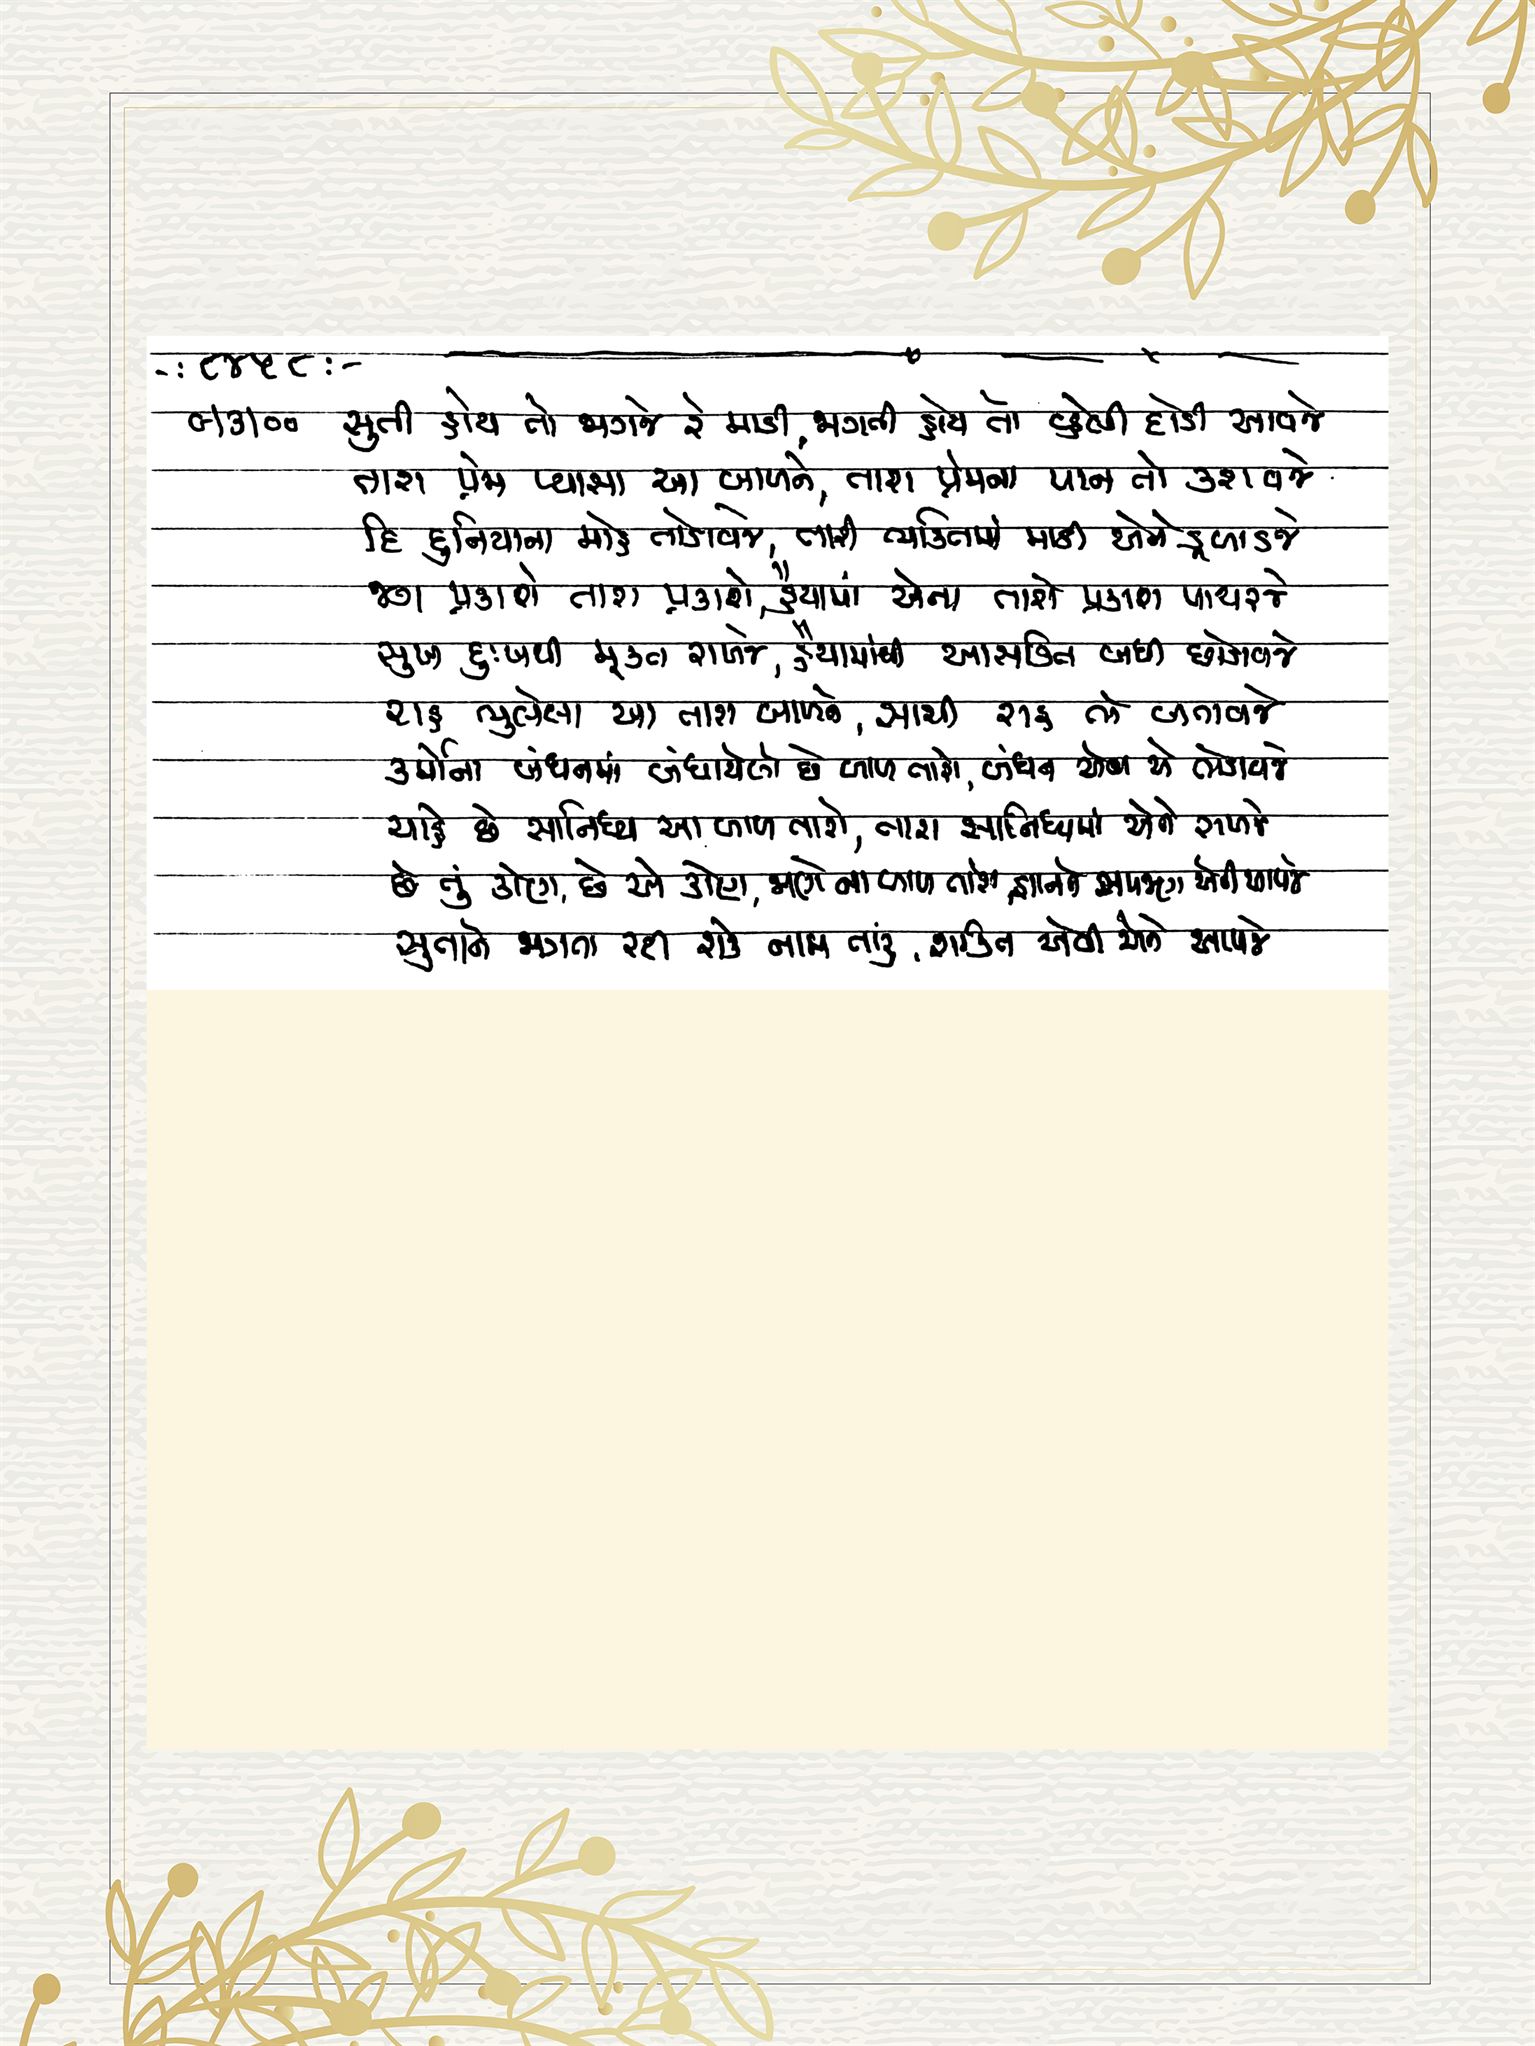 -: ૮૪૫૮ :-
૯/૩/૦૦ સુતી હોય તો જાગજે રે માડી, જાગતી હોય તો વહેલી દોડી આવજે
તારા પ્રેમ પ્યાસા આ બાળને, તારા પ્રેમના પાન તો કરાવજે
દિ દુનિયાના મોહ તોડાવજે, તારી ભક્તિમાં માડી એને ડૂબાડજે
જગ પ્રકાશે તારા પ્રકાશે, હૈયામાં એના તારો પ્રકાશ પાથરજે
સુખ દુઃખથી મૂક્ત રાખજે, હૈયામાંથી આસક્તિ બધી છોડાવજે
રાહ ભુલેલા આ તારા બાળને, સાચી રાહ તો બતાવજે
કર્મોના બંધનમાં બંધાયેલો છે બાળ તારો, બંધન એના એ તોડાવજે
ચાહે છે સાનિધ્ય આ બાળ તારો, તારા સાનિધ્યમાં એને રાખજે
છે તું કોણ, છે એ કોણ, જાણે ના બાળ તારો, જ્ઞાનને સમજણ એની આપજે
સુતાને જાગતા રટી શકે નામ તારું, શક્તિ એવી એને આપજે